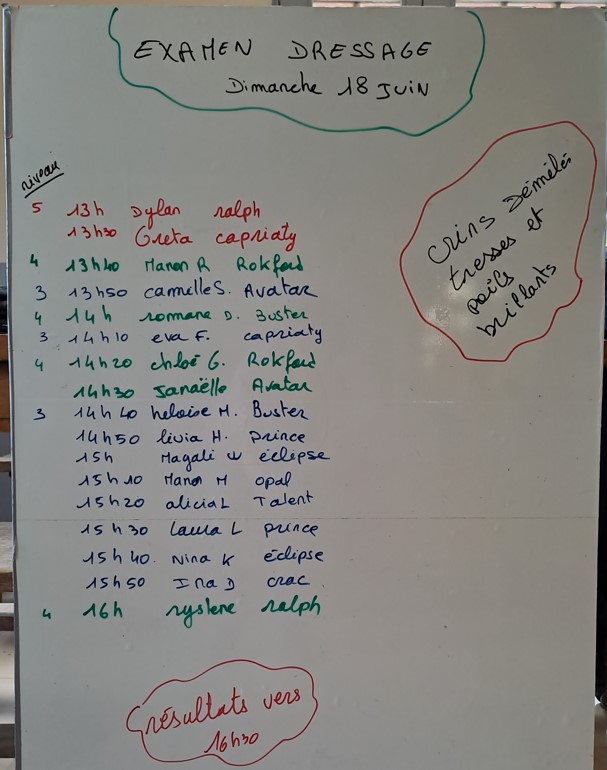 EXAMEN DRESSAGE
Dimanche 18 JUIN
niveau
5 13h Dylan ralph
13h30 Greta capriaty
4 13h40 Manon R Rokford
3 13h50 camelle S. Avatar
4 14h romane D. Buster
3 14h10 eva F. capriaty
4 14h20 chloé G. Rokford
14h30 Janaëlle Avatar
3 14h40 heloise M. Buster
14h50 livia H. prince
15h Magali W éclipse
15h10 Manon M opal
15h20 alicia L Talent
15h30 Laura L prince
15h40. Nina K éclipse
15h50 Ina D crac
4 16h ryslene ralph
crins Démêlés
tresses et
poils
brillants
résultats vers
16h30